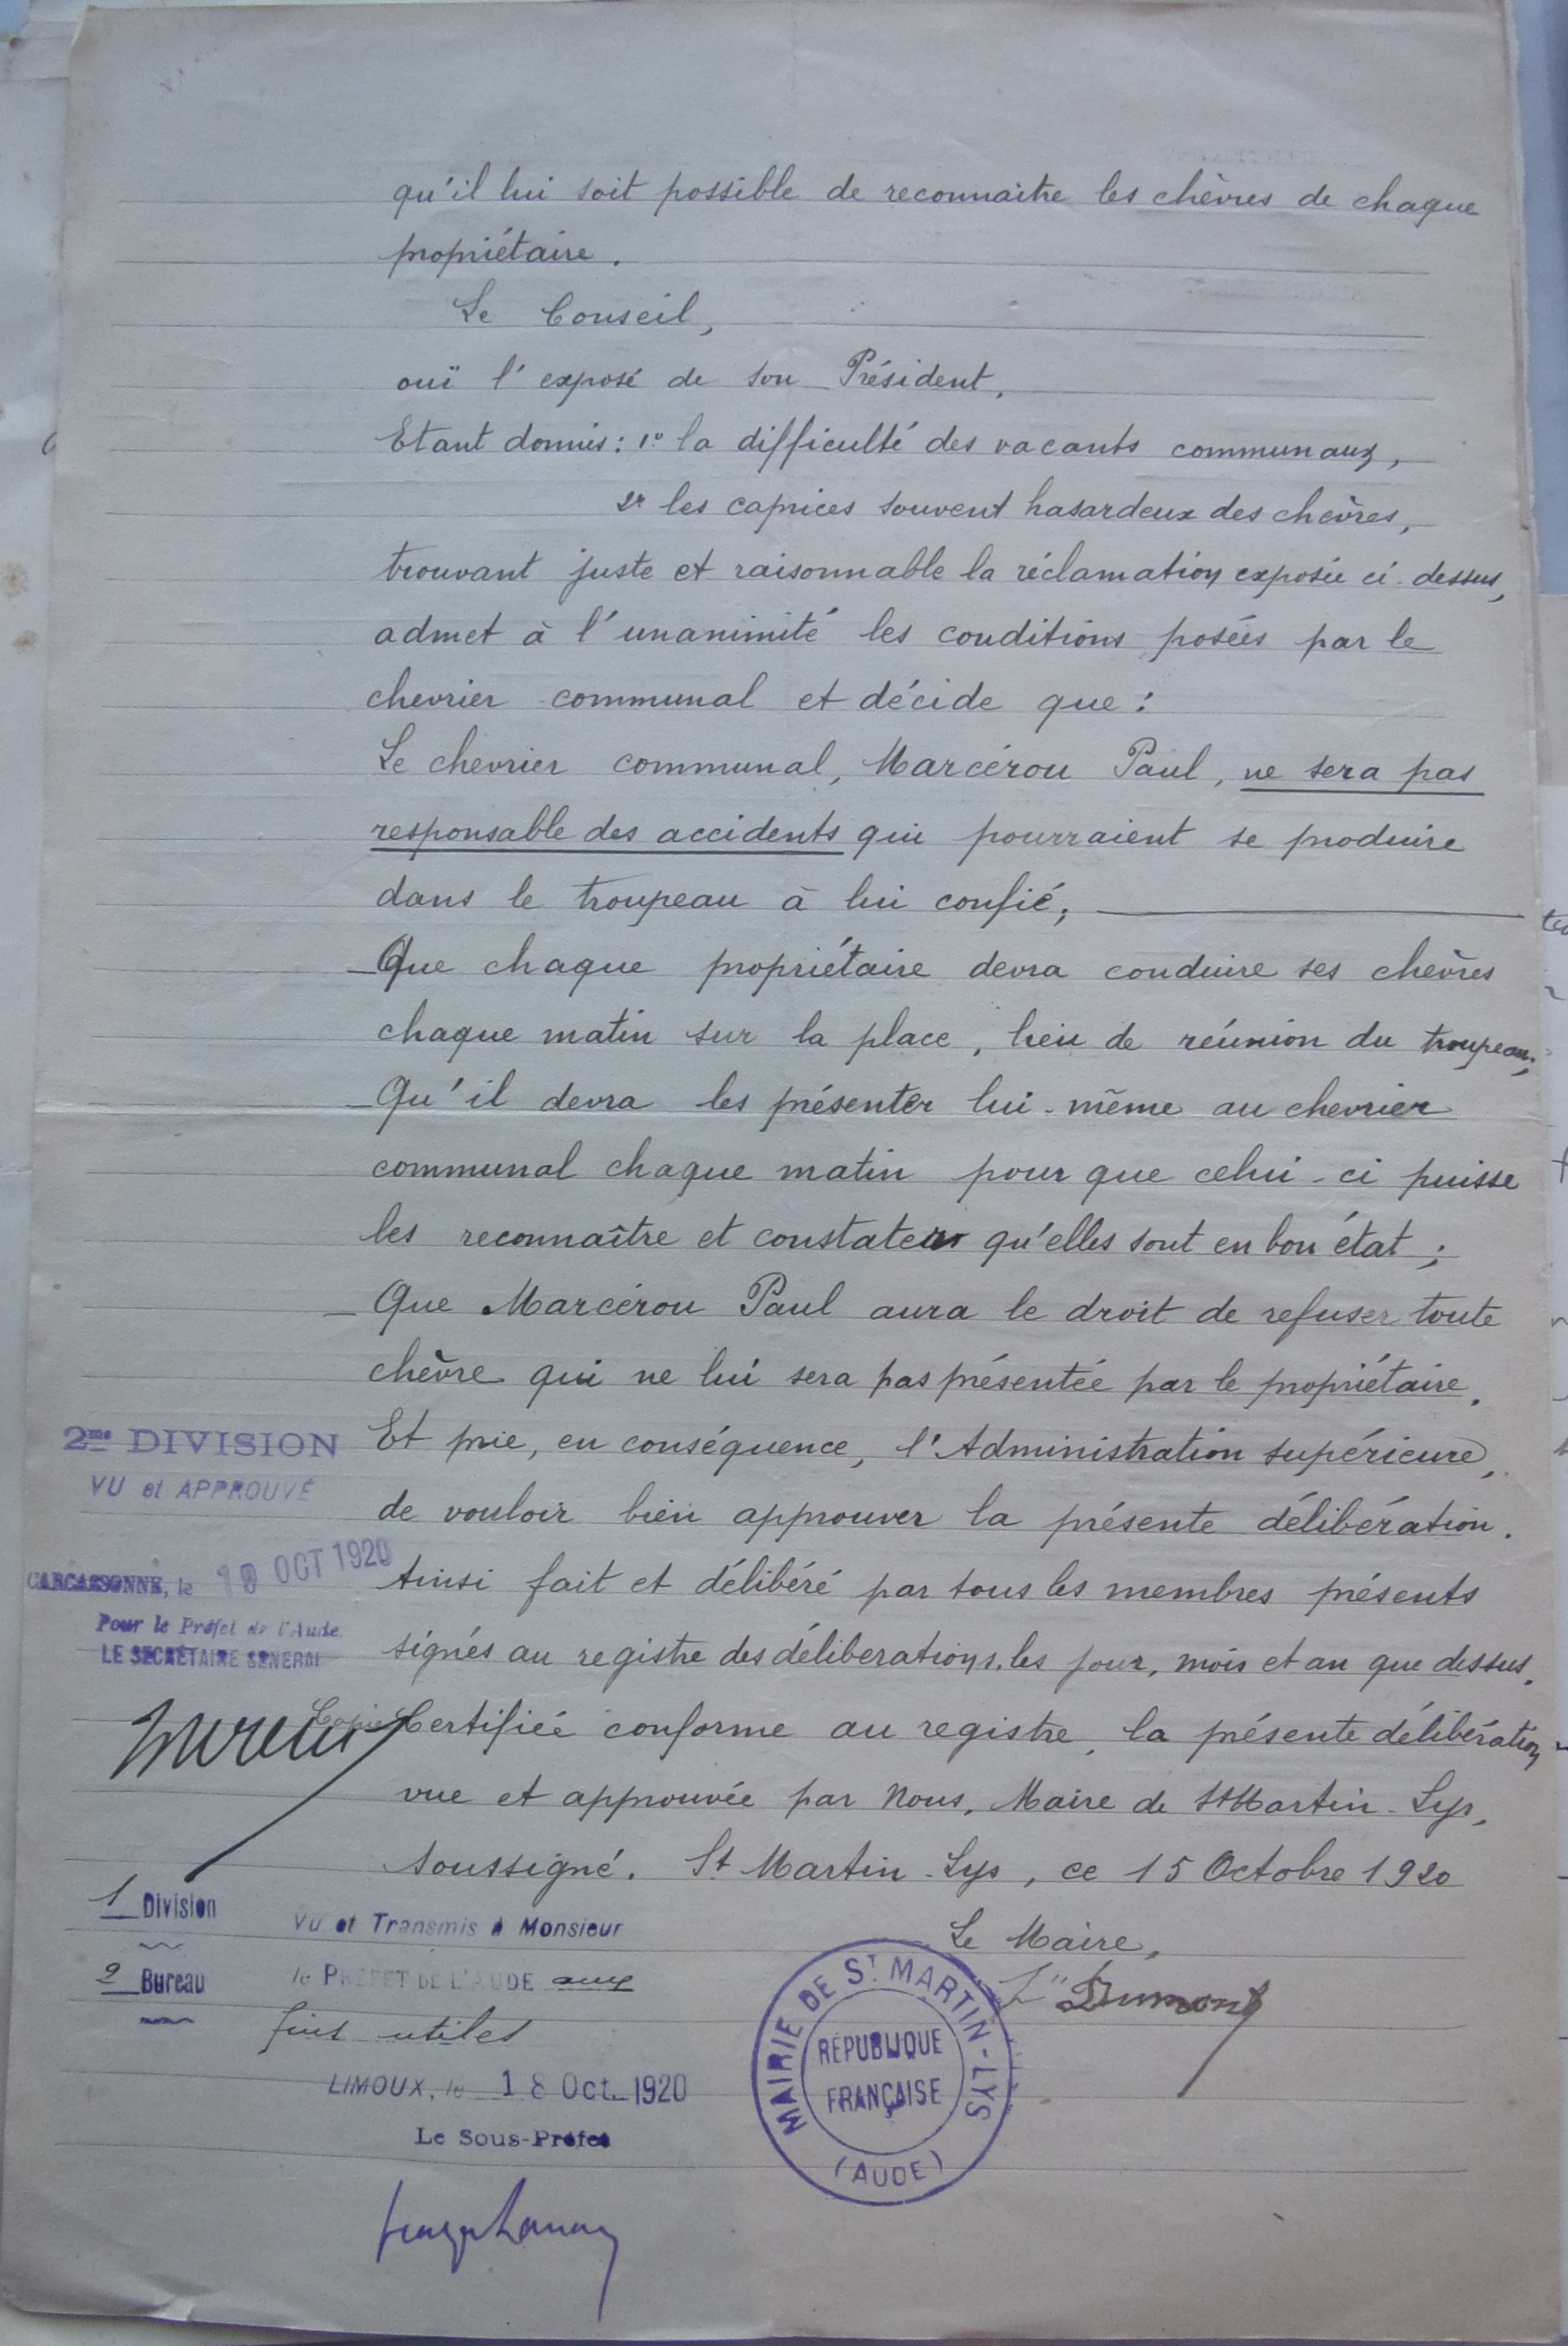 qu'il lui soit possible de reconnaitre les chèvres de chaque
propriétaire.
Le Conseil,
ouï l'exposé de son Président,
Etant donnés: 1º la difficulté des vacants communaux,
2º les caprices souvent hasardeux des chèvres,
trouvant juste et raisonnable la réclamation exposée ci-dessus,
admet à l'unanimité les conditions posées par le
chevrier communal et décide que:
Le chevrier communal, Marcérou Paul, ne sera pas
responsable des accidents qui pourraient se produire
dans le troupeau à lui confié;
_Que chaque propriétaire devra conduire ses chèvres
chaque matin sur la place, lieu de réunion du troupeau;
_Qu'il devra les présenter lui-même au chevrier
communal chaque matin pour que celui-ci puisse
les reconnaître et constater qu'elles sont en bon état;
_Que Marcérou Paul aura le droit de refuser toute
chèvre qui ne lui sera pas présentée par le propriétaire.
Et prie, en conséquence, l'Administration supérieure,
de vouloir bien approuver la présente délibération.
Ainsi fait et délibéré par tous les membres présents
signés au registre des déliberations, les jour, mois et an que dessus.
Copie Certifiée conforme au registre, la présente délibération
vue et approuvée par Nous, Maire de St Martin-Lys,
soussigné. St Martin-Lys, ce 15 Octobre 1920
Le Maire,
Dumont
2me DIVISION
VU et APPROUVÉ
CARCASSONNE, le 19 OCT 1920
Pour le Préfet de l'Aude
LE SECRÉTAIRE GÉNÉRAL
1 Division
2 Bureau
Vu et Transmis à Monsieur
le PREFET DE L'AUDE aux
fins utiles
LIMOUX, le 18 Oct. 1920
Le Sous-Préfet
MAIRIE DE ST MARTIN-LYS
RÉPUBLIQUE
FRANÇAISE
(AUDE)